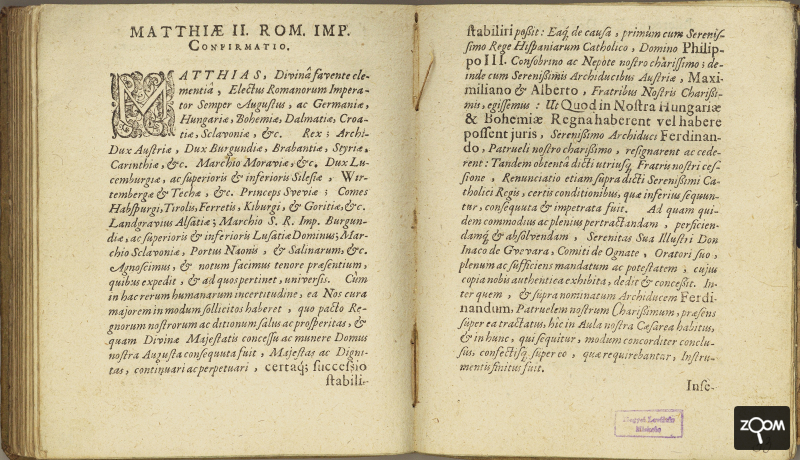 MATTHIÆ II. ROM. IMP.
CONFIRMATIO.
MATTHIAS, Divinâ favente cle-
mentiâ, Electus Romanorum Impera-
tor Semper Augustus, ac Germaniæ,
Hungariæ, Bohemiæ, Dalmatiæ, Croa-
tiæ, Sclavoniæ, &c. Rex; Archi-
Dux Austriæ, Dux Burgundiæ, Brabantiæ, Styriæ,
Carinthiæ, &c. Marchio Moraviæ, &c. Dux Lu-
cemburgiæ, ac superioris & inferioris Silesiæ, Wir-
tembergæ & Techæ, &c. Princeps Sveviæ; Comes
Habspurgi, Tirolis, Ferretis, Kiburgi, & Goritiæ, &c.
Landgravius Alsatiæ; Marchio S. R. Imp. Burgun-
diæ, ac superioris & inferioris Lusatiæ Dominus; Mar-
chio Sclavoniæ, Portus Naonis, & Salinarum, &c.
Agnoscimus, & notum facimus tenore præsentium,
quibus expedit, & ad quos pertinet, universis. Cùm
in hac rerum humanarum incertitudine, ea Nos cura
majorem in modum sollicitos haberet, quo pacto Re-
gnorum nostrorum ac ditionum salus ac prosperitas, &
quam Divinæ Majestatis concessu ac munere Domus
nostra Augusta consequuta fuit, Majestas ac Digni-
tas, continuari ac perpetuari, certaq; successio
stabili-
stabiliri possit: Eaq; de causa, primùm cum Serenis-
simo Rege Hispaniarum Catholico, Domino Philip-
po III. Consobrino ac Nepote nostro charissimo; de-
inde cum Serenissimis Archiducibus Austriæ, Maxi-
miliano & Alberto, Fratribus Nostris Charissi-
mis, egissemus: Ut Quod in Nostra Hungariæ
& Bohemiæ Regna haberent vel habere
possent juris, Serenissimo Archiduci Ferdinan-
do, Patrueli nostro charissimo, resignarent ac cede-
rent: Tandem obtentâ dicti utriusq; Fratris nostri ces-
sione, Renunciatio etiam supra dicti Serenissimi Ca-
tholici Regis, certis conditionibus, quæ inferius sequun-
tur, consequuta & impetrata fuit. Ad quam qui-
dem commodius ac plenius pertractandam, perficien-
damq; & absolvendam, Serenitas Sua Illustri Don
Inaco de Guevara, Comiti de Ognate, Oratori suo,
plenum ac sufficiens mandatum ac potestatem, cujus
copia nobis authentica exhibita, dedit & concessit. In-
ter quem, & supra nominatum Archiducem Ferdi-
nandum, Patruelem nostrum Charissimum, præsens
super ea tractatus, hic in Aula nostra Cæsarea habitus,
& in hunc, qui sequitur, modum concorditer conclu-
sus, confectisq; super eo, quæ requirebantur, Instru-
mentis finitus fuit.
Inse-
ZOOM